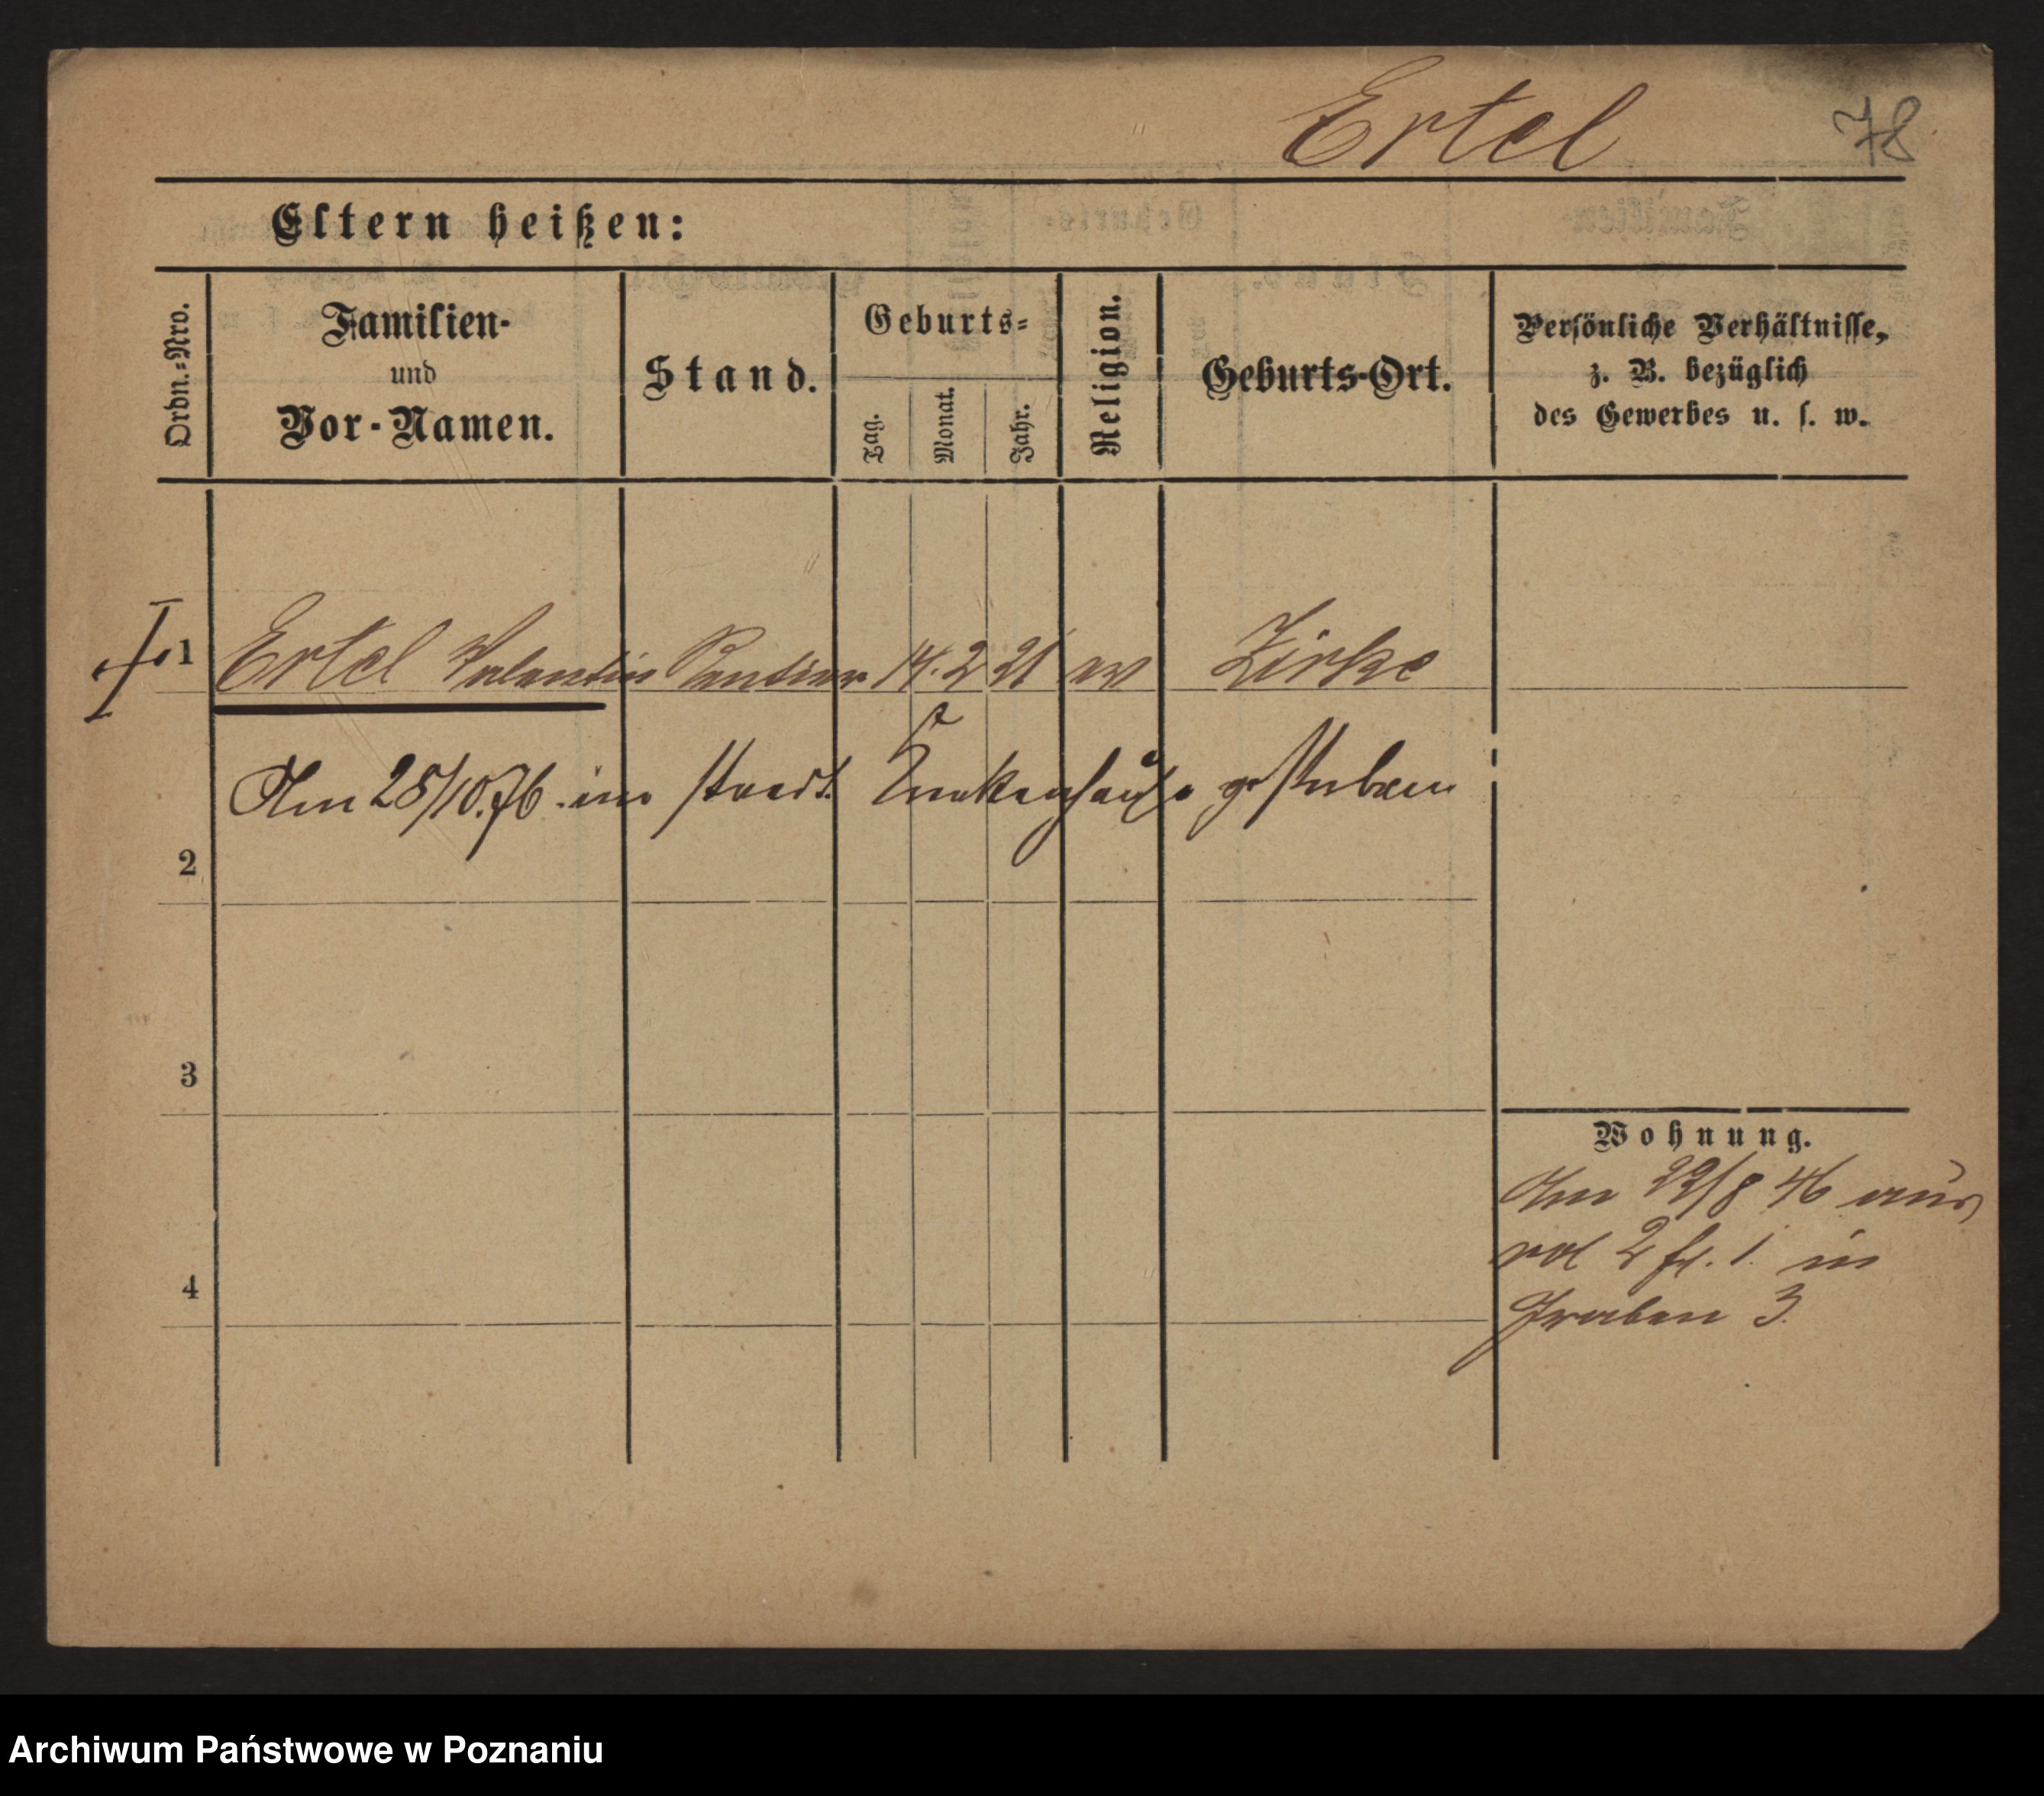 Ertel 78
Eltern heißen:
Ordn.=Nro.
Familien-
und
Vor-Namen.
Stand.
Geburts=
Tag.
Monat.
Jahr.
Religion.
Geburts-Ort.
Persönliche Verhältnisse,
z. B. bezüglich
des Gewerbes u. s. w.
1 Ertel Valentin Rentier 14. 2 21 ev Zirke
Am 28/10.76 im staedt. Krankenhause gestorben
2
3
4
Wohnung.
Am 22/8 76 aus
vol 2 fol. 1 in
Graben 3.
Archiwum Państwowe w Poznaniu